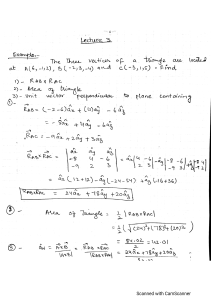 Lecture 3
Example:-
The three vertices of a triangle are located
at A(6,-1,2), B(-2,3,-4) and C(-3,1,5). Find
1)- RAB × RAC
2)- Area of Triangle
3)- Unit vector perpendicular to plane containing
RAB = (-2-6)ax + (4)ay - 6az
= -8ax + 4ay - 6az
RAC = -9ax + 2ay + 3az
ax ay az
RAB×RAC = -8 4 -6
-9 2 3
= ax(12+12) - ay(-24-54) + az(-16+36)
= 24ax + 78ay + 20az
Area of Triangle = 1/2 |RAB×RAC|
= 1/2 √(24)²+(78)²+(20)²
= 84.02/2 = 42.01
24ax+78ay+20az
Scanned with CamScanner